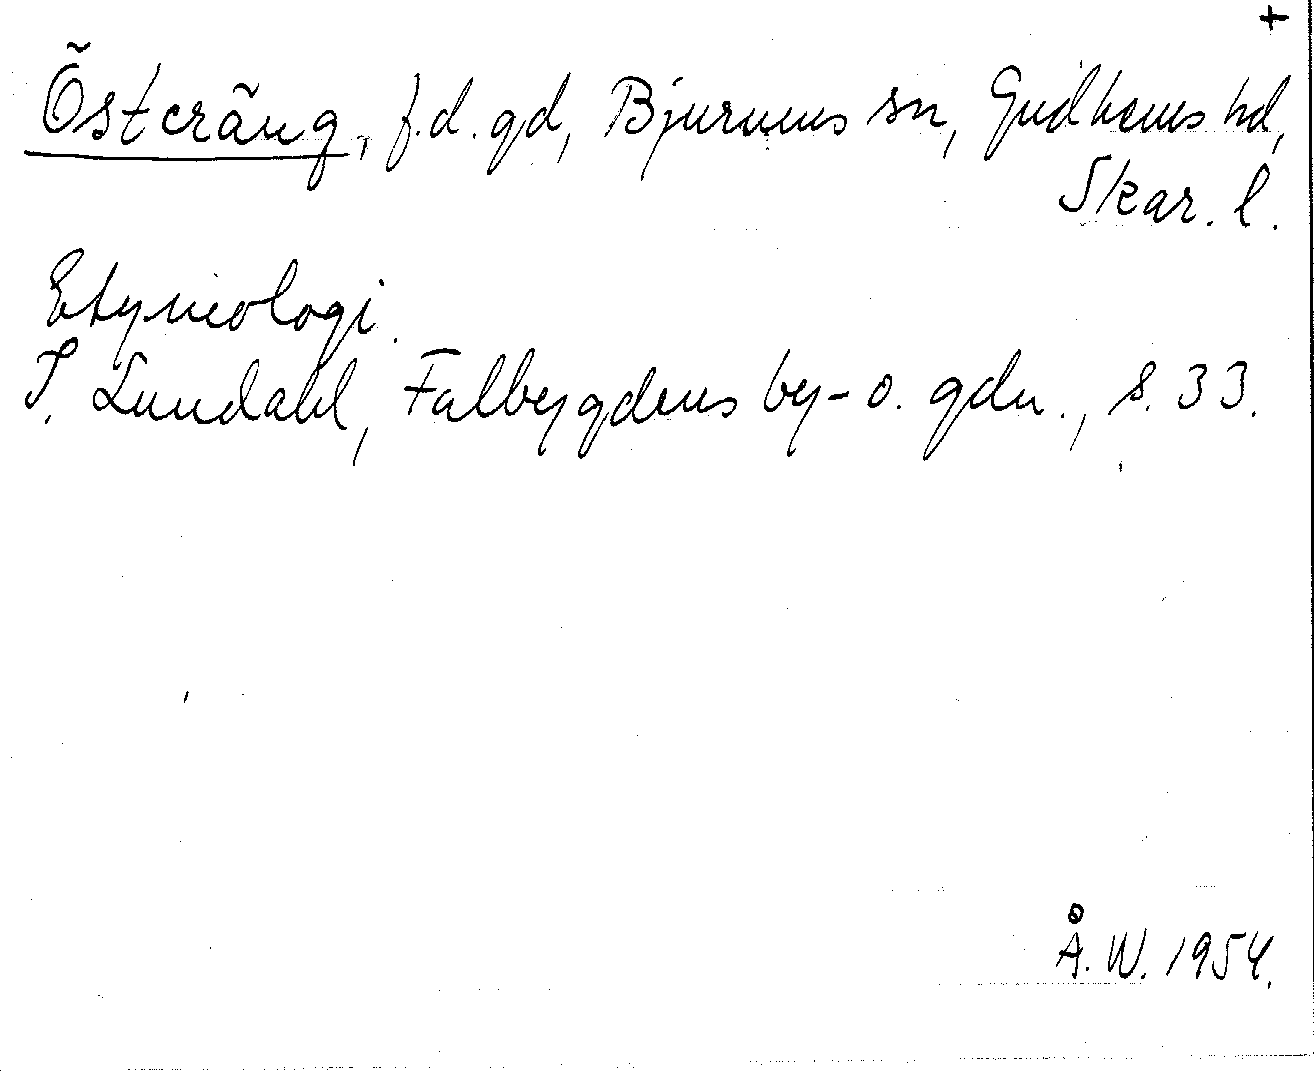 +
Österäng, f.d. gd, Bjurums sn, Gudhems hd,
Skar. l.
Etymologi.
I. Lundahl, Falbygdens by- o. gdn., s. 33.
Å. W. 1954.